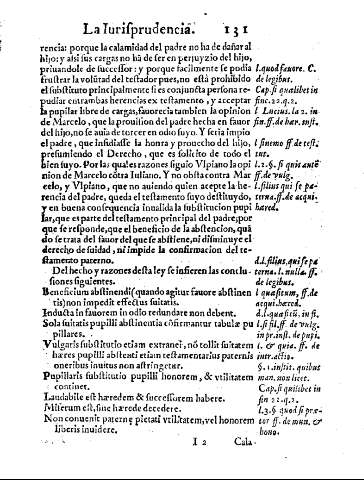 La Iurisprudencia. 131
rencia: porque la calamidad del padre no ha de dañar al
hijo: y assi sus cargas no há de ser en perjuyzio del hijo,
priuandole de successor: y porque facilmente se podia
frustrar la voluntad del testador pues, no está prohibido
el substituto principalmente si es conjuncta persona re-
pudiar entrambas herencias ex testamento, y acceptar
la pupilar libre de cargas, fauorece tambien la opinion
de Marcelo, que la prouision del padre hecha en fauor
del hijo, no se auia de torcer en odio suyo. Y seria impio
el padre, que insidiasse la honra y prouecho del hijo,
presumiendo el Derecho, que es solicito de todo el
bien suyo. Por las quales razones siguio Vlpiano la opi
nion de Marcelo cōtra Iuliano. Y no obsta contra Mar
celo, y Vlpiano, que no auiendo quien acepte la he-
rencia del padre, queda el testamento suyo destituydo,
y en buena consequencia inualida la substitucion pupi
lar, que es parte del testamento principal del padre; por
que se responde, que el beneficio de la abstencion, quā
do se trata del fauor del que se abstiene, ni disminuye el
derecho de suidad, ni impide la confirmacion del te-
stamento paterno.
Del hecho y razones desta ley se infieren las conclu
siones siguientes.
Beneficium abstinendi (quando agitur fauore abstinen
tis) non impedit effectus suitatis.
Inducta in fauorem in odio redundare non debent.
Sola suitatis pupilli abstinentia cōfirmantur tabulæ pu
pillares.
Vulgaris substitutio etiam extranei, nō tollit suitatem
hæres pupilli abstenti etiam testamentarius paternis
oneribus inuitus non astringetur.
Pupillaris substitutio pupilli honorem, & vtilitatem
continet.
Laudabile est hæredem & successorem habere.
Miserum est, sine hærede decedere.
Non conuenit paternæ pietati vtilitatem, vel honorem
liberis inuidere.
I 2 Cala-
l. quod fauore. C.
de legibus.
Cap. si qualitbet in
finc. 22. q. 2.
l Lucius. la 2. in
fin. ff. de hær. inst.
l finemo ff de test.
tut.
l. 2. §. si quis autē
ff. de vulg.
l. filius qui se pa-
terna. ff. de acqui.
hæred.
d. l. filius, qui se pa
terna. l. nulla. ff.
de legibus.
l quæsitum, ff. de
acqui. hæred.
d. l. quæsitū, in fi
l. si fil. ff. de vulg.
in pr. inst. de pupi.
l. & quia. ff. de
inter. actio.
§. 1. instit. quibus
man. non licet.
Cap. si quilibet in
fin 22. q. 2.
l. 3. § quod si præ-
tor ff. de mun. &
bono.